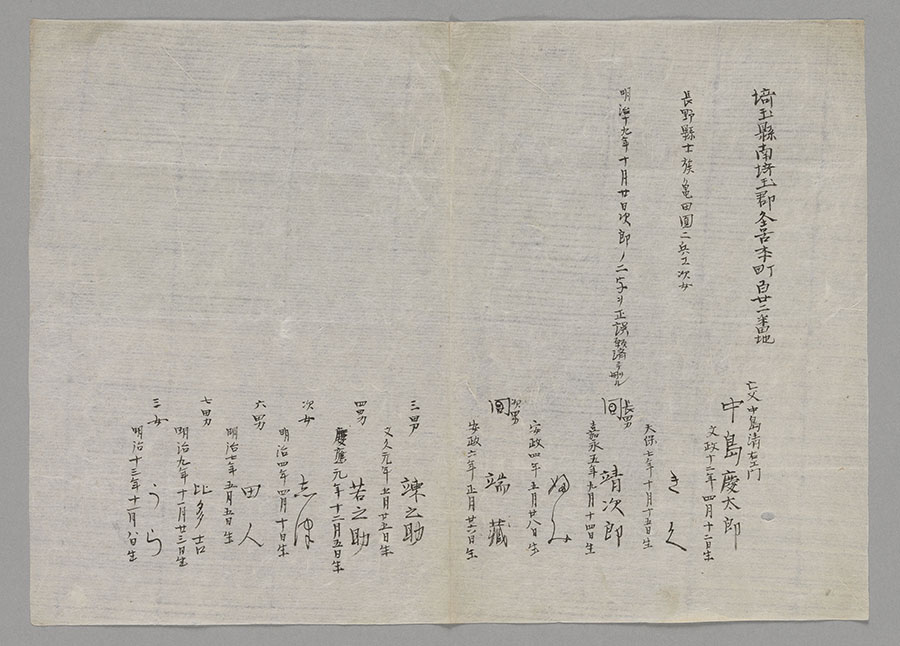 埼玉縣南埼玉郡 本町百廿二番地
亡父 中島清右エ門
中島慶太郎
文政十二年四月十二日生
長野縣士族亀田 次女
きく
天保七年十月十五日生
明治十九年十月廿日次郎ノ二字ヲ正誤 濟ニ
長男
靖次郎
嘉永五年九月十四日生
ふみ
安政四年五月廿八日生
次男
端藏
安政六年正月廿六日生
三男
諫之助
文久元年 月廿五日生
四男
若之助
慶應元年十二月五日生
次女
明治四年四月十日生
六男
田人
明治七年五月五日生
七男
比多吉
明治九年十一月廿三日生
三女
うら
明治十三年十一月八日生